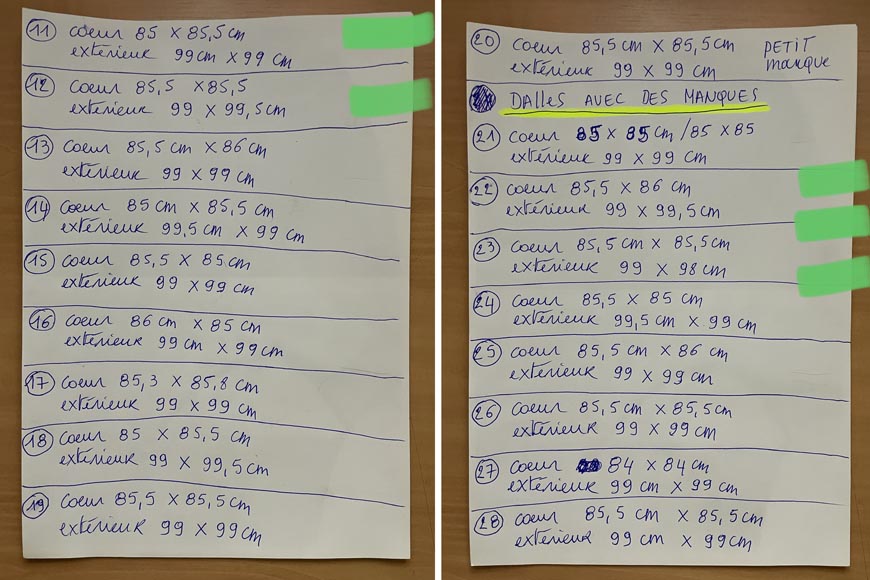 11 coeur 85 x 85,5cm
extérieur 99cm x 99cm
12 coeur 85,5 x 85,5
extérieur 99 x 99,5cm
13 coeur 85,5 cm x 86cm
extérieur 99 x 99 cm
14 coeur 85 cm x 85,5 cm
extérieur 99,5 cm x 99 cm
15 coeur 85,5 x 85cm
extérieur 99 x 99cm
16 coeur 86 cm x 85 cm
extérieur 99 cm x 99cm
17 coeur 85,3 x 85,8 cm
extérieur 99 x 99 cm
18 coeur 85 x 85,5 cm
extérieur 99 x 99,5cm
19 coeur 85,5 x 85,5cm
extérieur 99 x 99cm
20 coeur 85,5 cm x 85,5cm PETIT
extérieur 99 x 99 cm manque
DALLES AVEC DES MANQUES
21 coeur 85 x 85cm / 85 x 85
extérieur 99 x 99 cm
22 coeur 85,5 x 86 cm
extérieur 99 x 99,5 cm
23 coeur 85,5 cm x 85,5cm
extérieur 99 x 98 cm
24 coeur 85,5 x 85 cm
extérieur 99,5 cm x 99 cm
25 coeur 85,5 cm x 86 cm
extérieur 99 x 99 cm
26 coeur 85,5cm x 85,5cm
extérieur 99 x 99 cm
27 coeur 84 x 84 cm
extérieur 99 cm x 99 cm
28 coeur 85,5 cm x 85,5 cm
extérieur 99 cm x 99cm